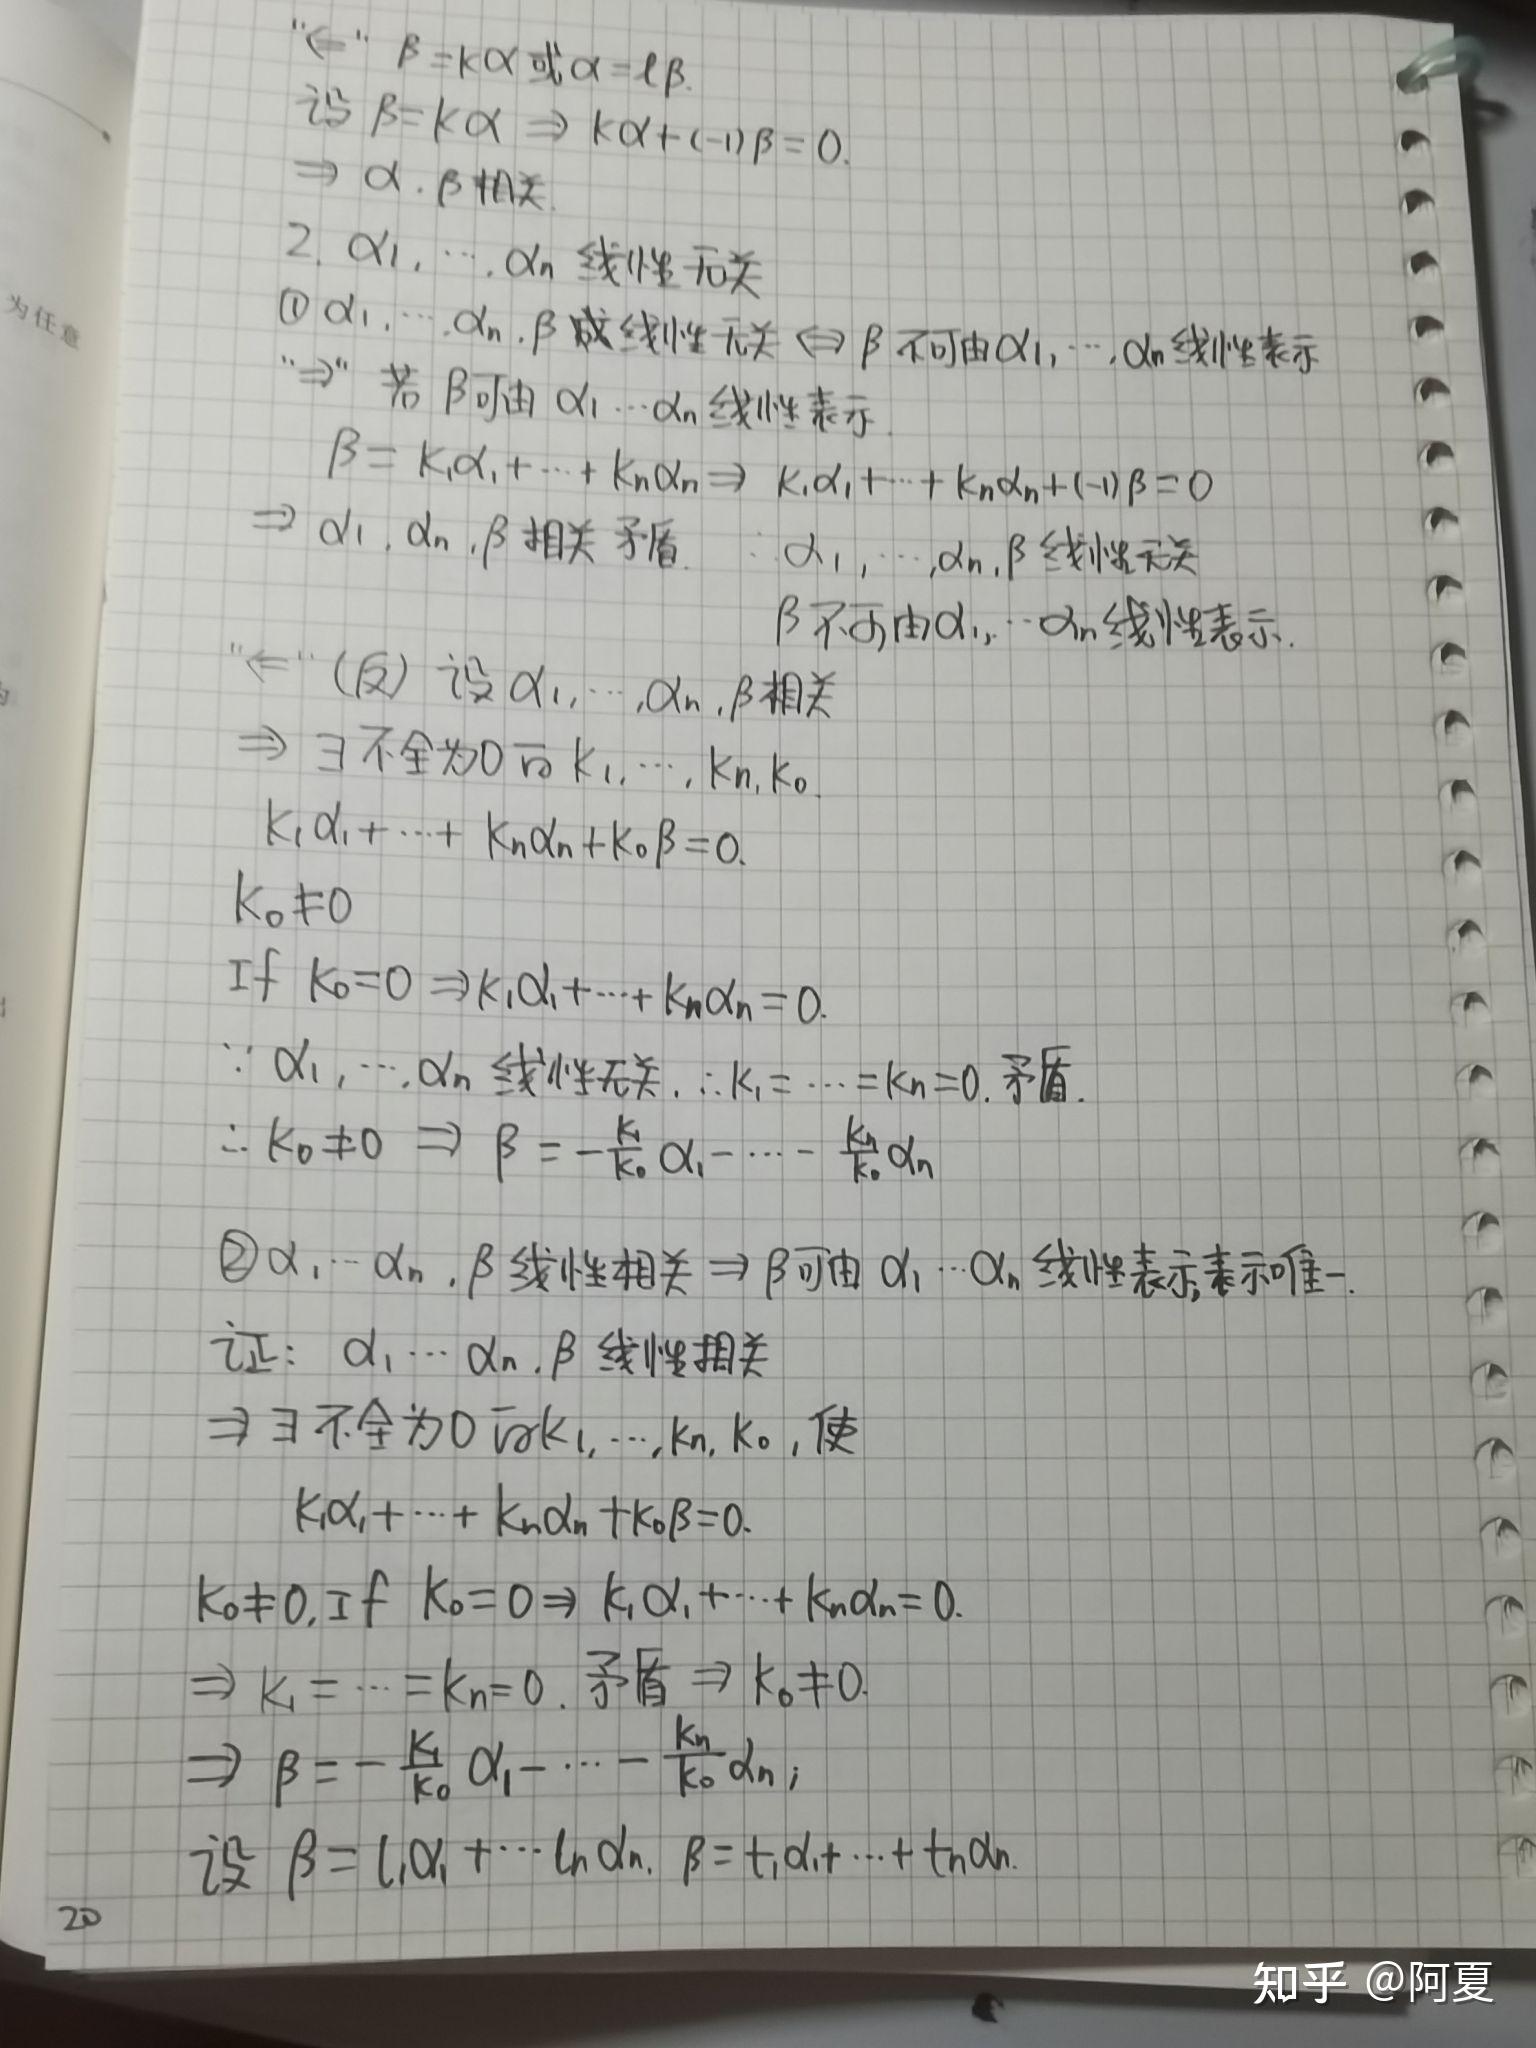 "⇐" β=kα或α=lβ.
设 β=kα ⇒ kα+(-1)β=0.
⇒ α.β相关.
2. α₁,…,αn 线性无关
① α₁,…,αn,β 线性无关 ⇔ β 不可由α₁,…,αn线性表示
"⇒" 若 β可由 α₁…αn 线性表示.
β=k₁α₁+…+knαn ⇒ k₁α₁+…+knαn+(-1)β=0
⇒ α₁,αn,β 相关 矛盾. ∴ α₁,…,αn,β 线性无关
β不可由α₁,…αn线性表示.
"⇐" (反) 设 α₁,…,αn,β相关
⇒ ∃不全为0的k₁,…,kn,k₀.
k₁α₁+…+knαn+k₀β=0.
k₀≠0
If k₀=0 ⇒k₁α₁+…+knαn=0.
∵ α₁,…,αn 线性无关.∴k₁=…=kn=0.矛盾.
∴k₀≠0 ⇒ β=-k₁/k₀ α₁-…-kn/k₀ αn
②α₁…αn.β线性相关⇒β可由 α₁…αn 线性表示,表示唯一.
证: α₁…αn.β 线性相关
⇒∃不全为0的k₁,…,kn,k₀,使
k₁α₁+…+knαn+k₀β=0.
k₀≠0.If k₀=0⇒ k₁α₁+…+knαn=0.
⇒ k₁=…=kn=0.矛盾 ⇒ k₀≠0.
⇒ β=-k₁/k₀ α₁-…-kn/k₀ αn;
设 β=l₁α₁+…lnαn. β=t₁α₁+…+tnαn.
20
为任意
知乎 @阿夏